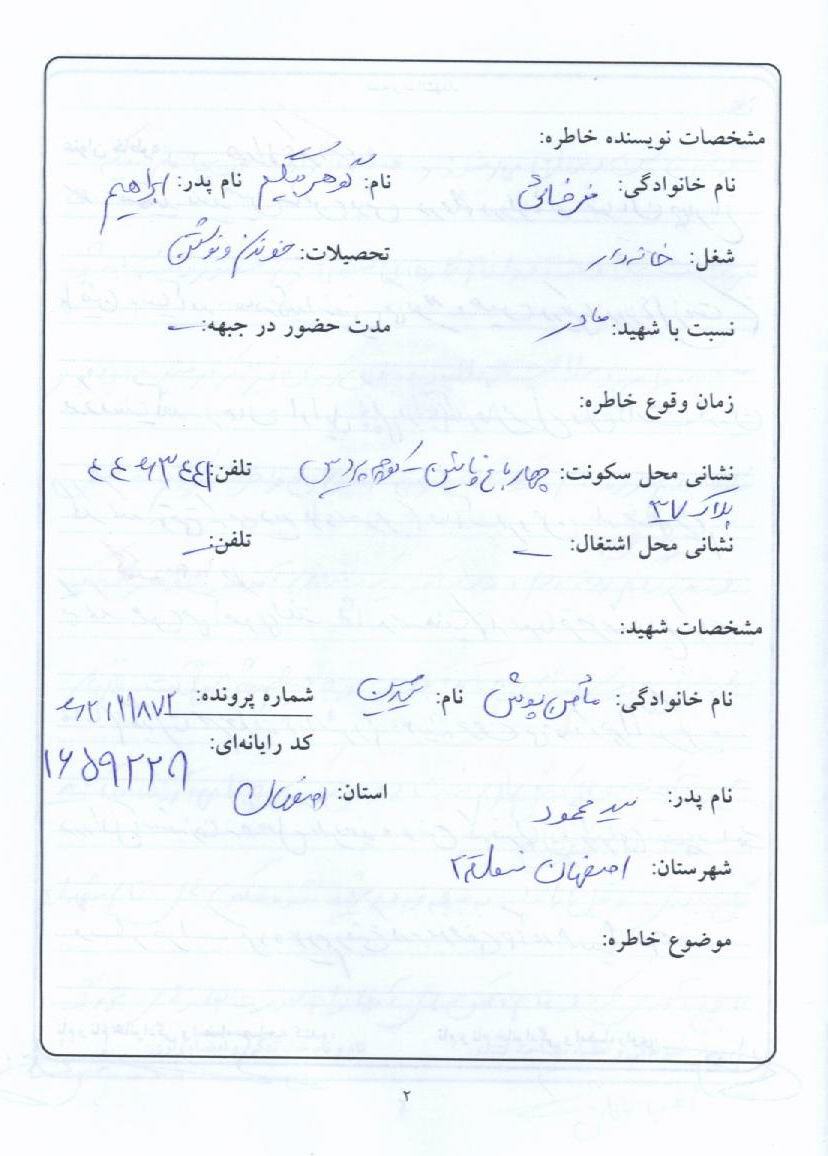 مشخصات نویسنده خاطره:
نام خانوادگی: نام: گوهر بیگم نام پدر: ابراهیم
شغل: خانه دار تحصیلات: خوندن و نوشتن
نسبت با شهید: مادر مدت حضور در جبهه: ــ
زمان وقوع خاطره:
نشانی محل سکونت: چهارباغ پایین - کوچه پردیس تلفن:
پلاک ۳۷
نشانی محل اشتغال: ــ تلفن: ــ
مشخصات شهید:
نام خانوادگی: مأمن پوش نام: شماره پرونده:
کد رایانه‌ای: ۱۶۵۹۲۲۹
نام پدر: سید محمود استان: اصفهان
شهرستان: اصفهان منطقه ۲
موضوع خاطره:
۲